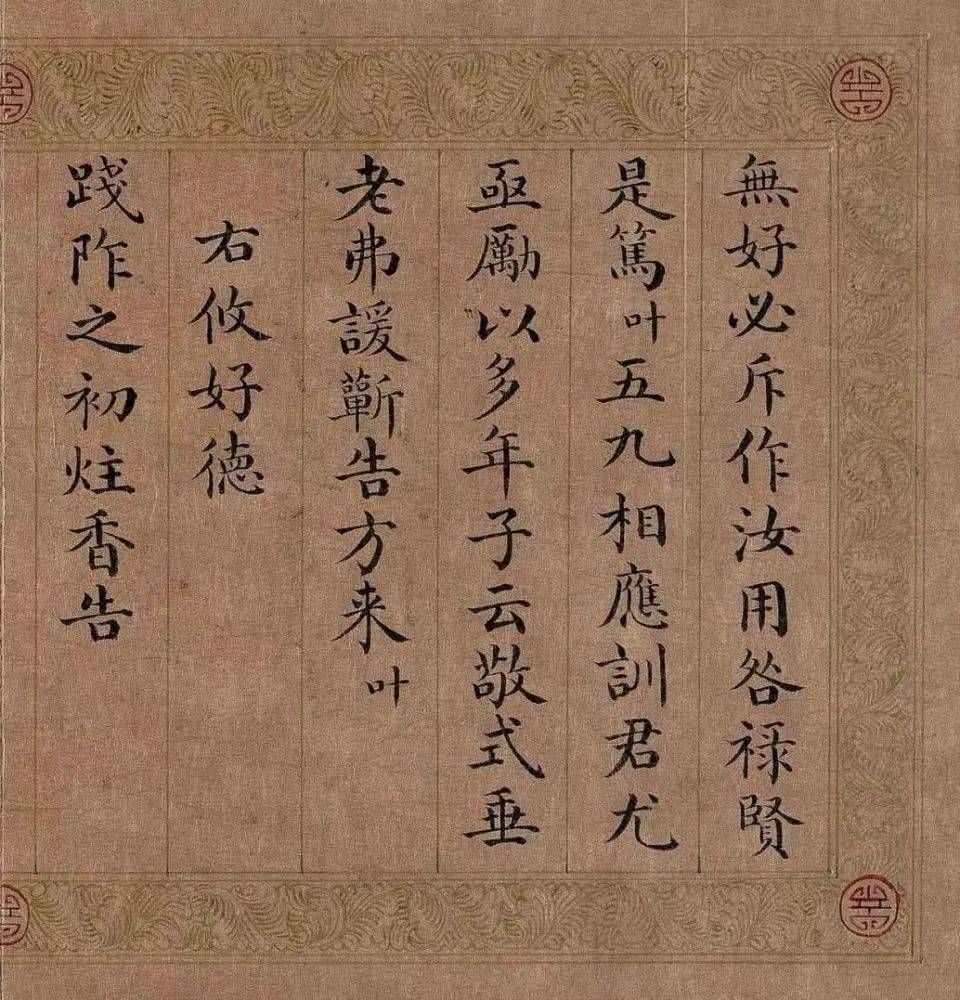 無好必斥作汝用咎祿賢
是篤叶五九相應訓君尤
亟勵以多年子云敬式垂
老弗諼蘄告方来叶
右攸好德
踐阼之初炷香告